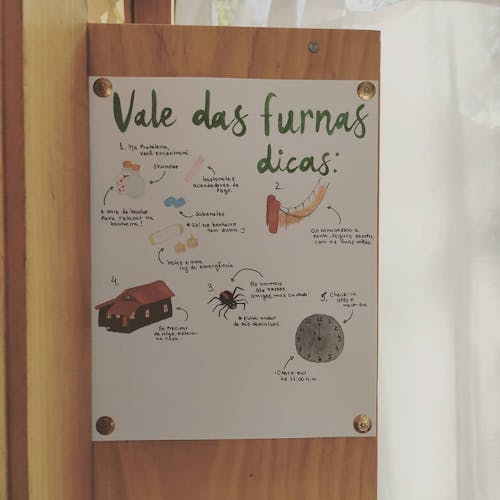 Vale das furnas
dicas:
1. Na Prateleira,
você encontrará:
Shampoo
bastonetes
acendedores de
fogo.
e sais de banho
Para relaxar na
banheira!
Sabonetes
Ah! no banheiro
tem outro :)
bolsa e uma
luz de emergência
2.
Ao atravessar a
ponte, segure sempre
com as duas mãos
3.
Os animais
são nossos
amigos, mas cuidado!
• Evite andar
de pés descalços
4.
Se precisar
de algo, estarei
na casa
5. Check-in
após o
meio-dia
• Check-out
às 11:00 a.m